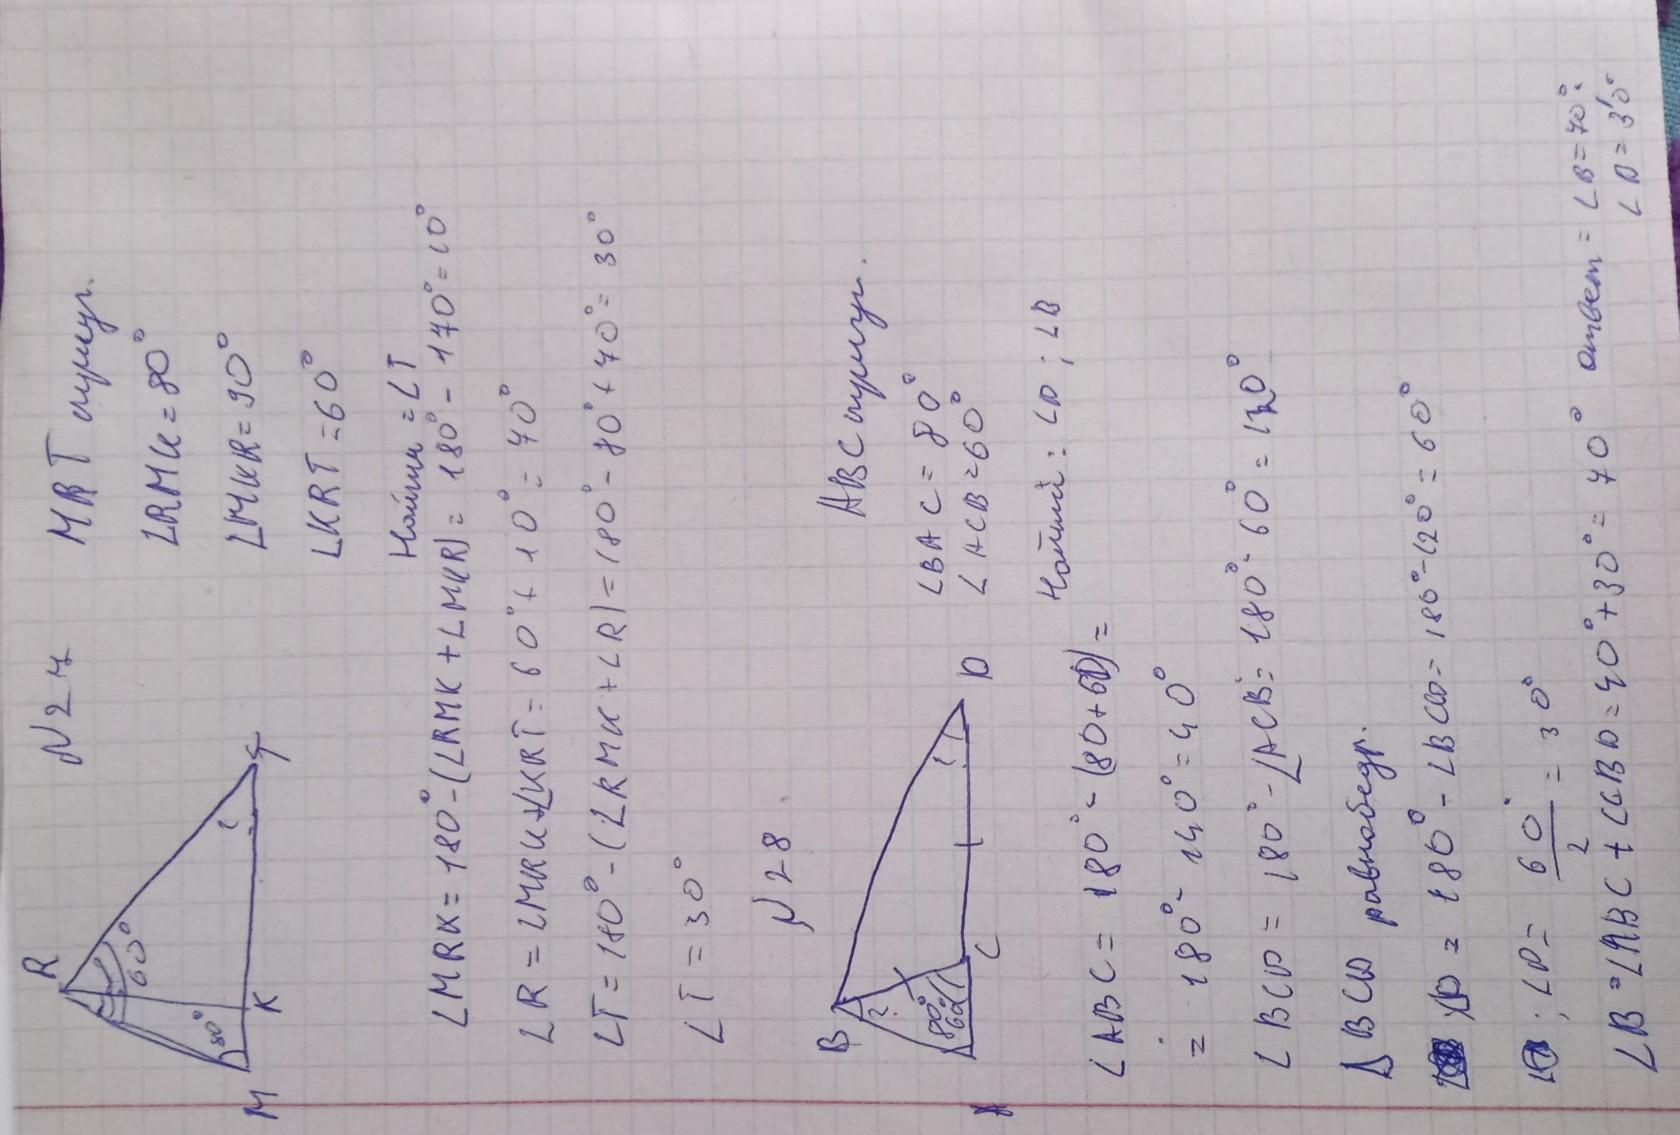 N 27
R
60°
80°
M
K
T
MRT
∠RMK = 80°
∠MKR = 90°
∠KRT = 60°
Найти = ∠T
∠MRK = 180° - (∠RMK + ∠MKR) = 180° - 170° = 10°
∠R = ∠MRK + ∠KRT = 60° + 10° = 70°
∠T = 180° - (∠RMK + ∠R) = 180° - 80° + 70° = 30°
∠T = 30°
N 28
B
?
80°
60°
A
C
D
ABC
∠BAC = 80°
∠ACB = 60°
Найти: ∠D; ∠B
∠ABC = 180° - (80 + 60) =
= 180° - 140° = 40°
∠BCD = 180° - ∠ACB = 180° - 60° = 120°
∆ BCD равнобедр.
∠D = 180° - ∠BCD = 180° - 120° = 60°
; ∠D = 60° / 2 = 30°
∠B = ∠ABC + ∠CBD = 40° + 30° = 70°
ответ = ∠B = 70°.
∠D = 30°